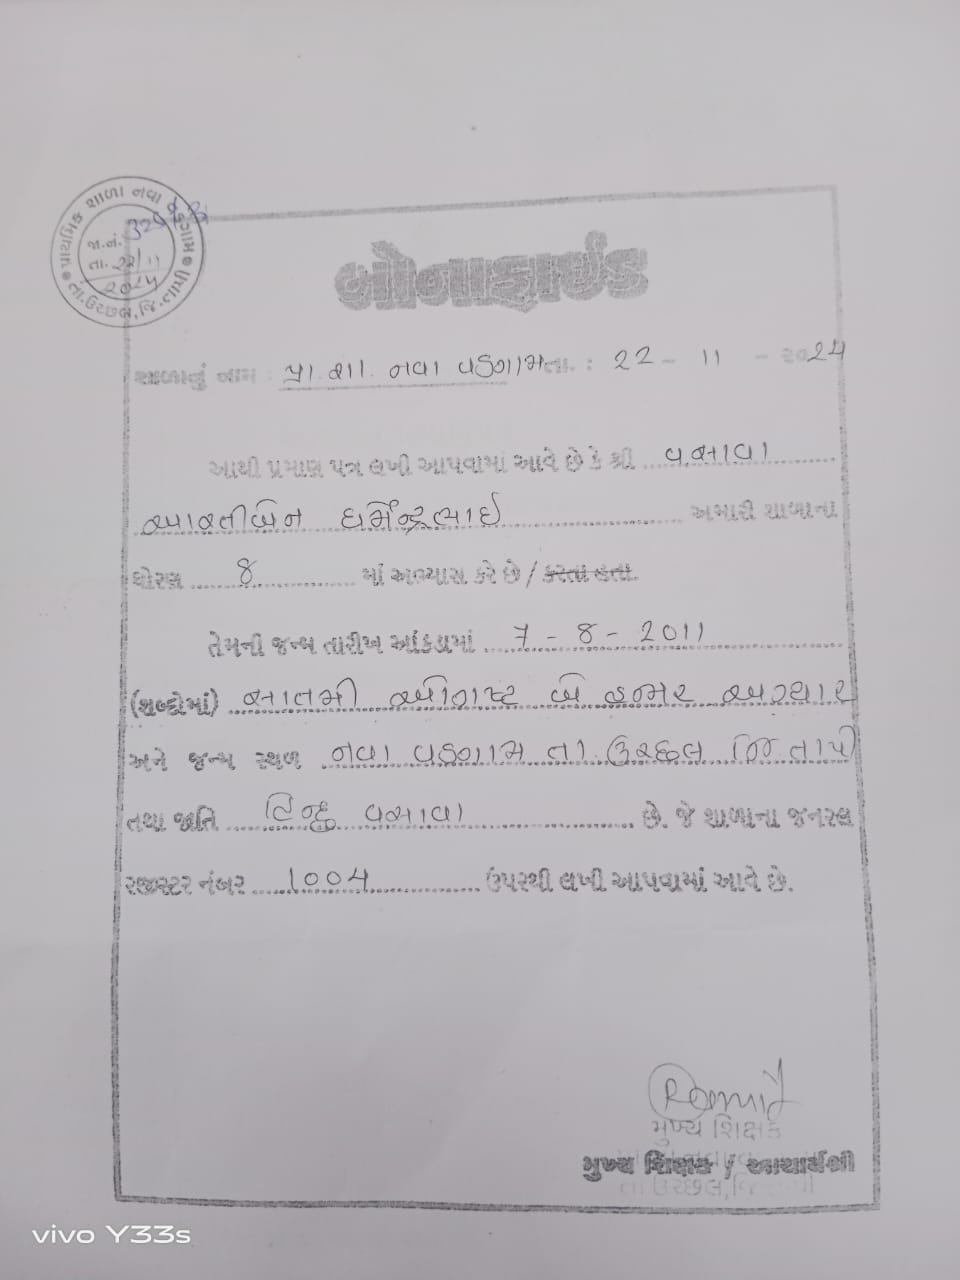 પ્રાથમિક શાળા નવા
જા.નં.
તા. 22/11
2024
તા.ઉચ્છલ,જિ.તાપી
બોનાફાઈડ
શાળાનું નામ : પ્રા. શા. નવા વડગામ તા. : 22 - 11 - ૨૦24
આથી પ્રમાણ પત્ર લખી આપવામાં આવે છે કે શ્રી વસાવા
આરતીબેન ધર્મેન્દ્રભાઇ અમારી શાળાના
ધોરણ 8 માં અભ્યાસ કરે છે / કરતા હતા.
તેમની જન્મ તારીખ આંકડામાં 7 - 8 - 2011
(શબ્દોમાં) સાતમી ઓગષ્ટ બે હજાર અગ્યાર
અને જન્મ સ્થળ નવા વડગામ તા. ઉચ્છલ જિ તાપી
તથા જાતિ હિન્દુ વસાવા છે. જે શાળાના જનરલ
રજીસ્ટર નંબર 1004 ઉપરથી લખી આપવામાં આવે છે.
મુખ્ય શિક્ષક
મુખ્ય શિક્ષક / આચાર્યશ્રી
તા ઉચ્છલ,જિ
vivo Y33s